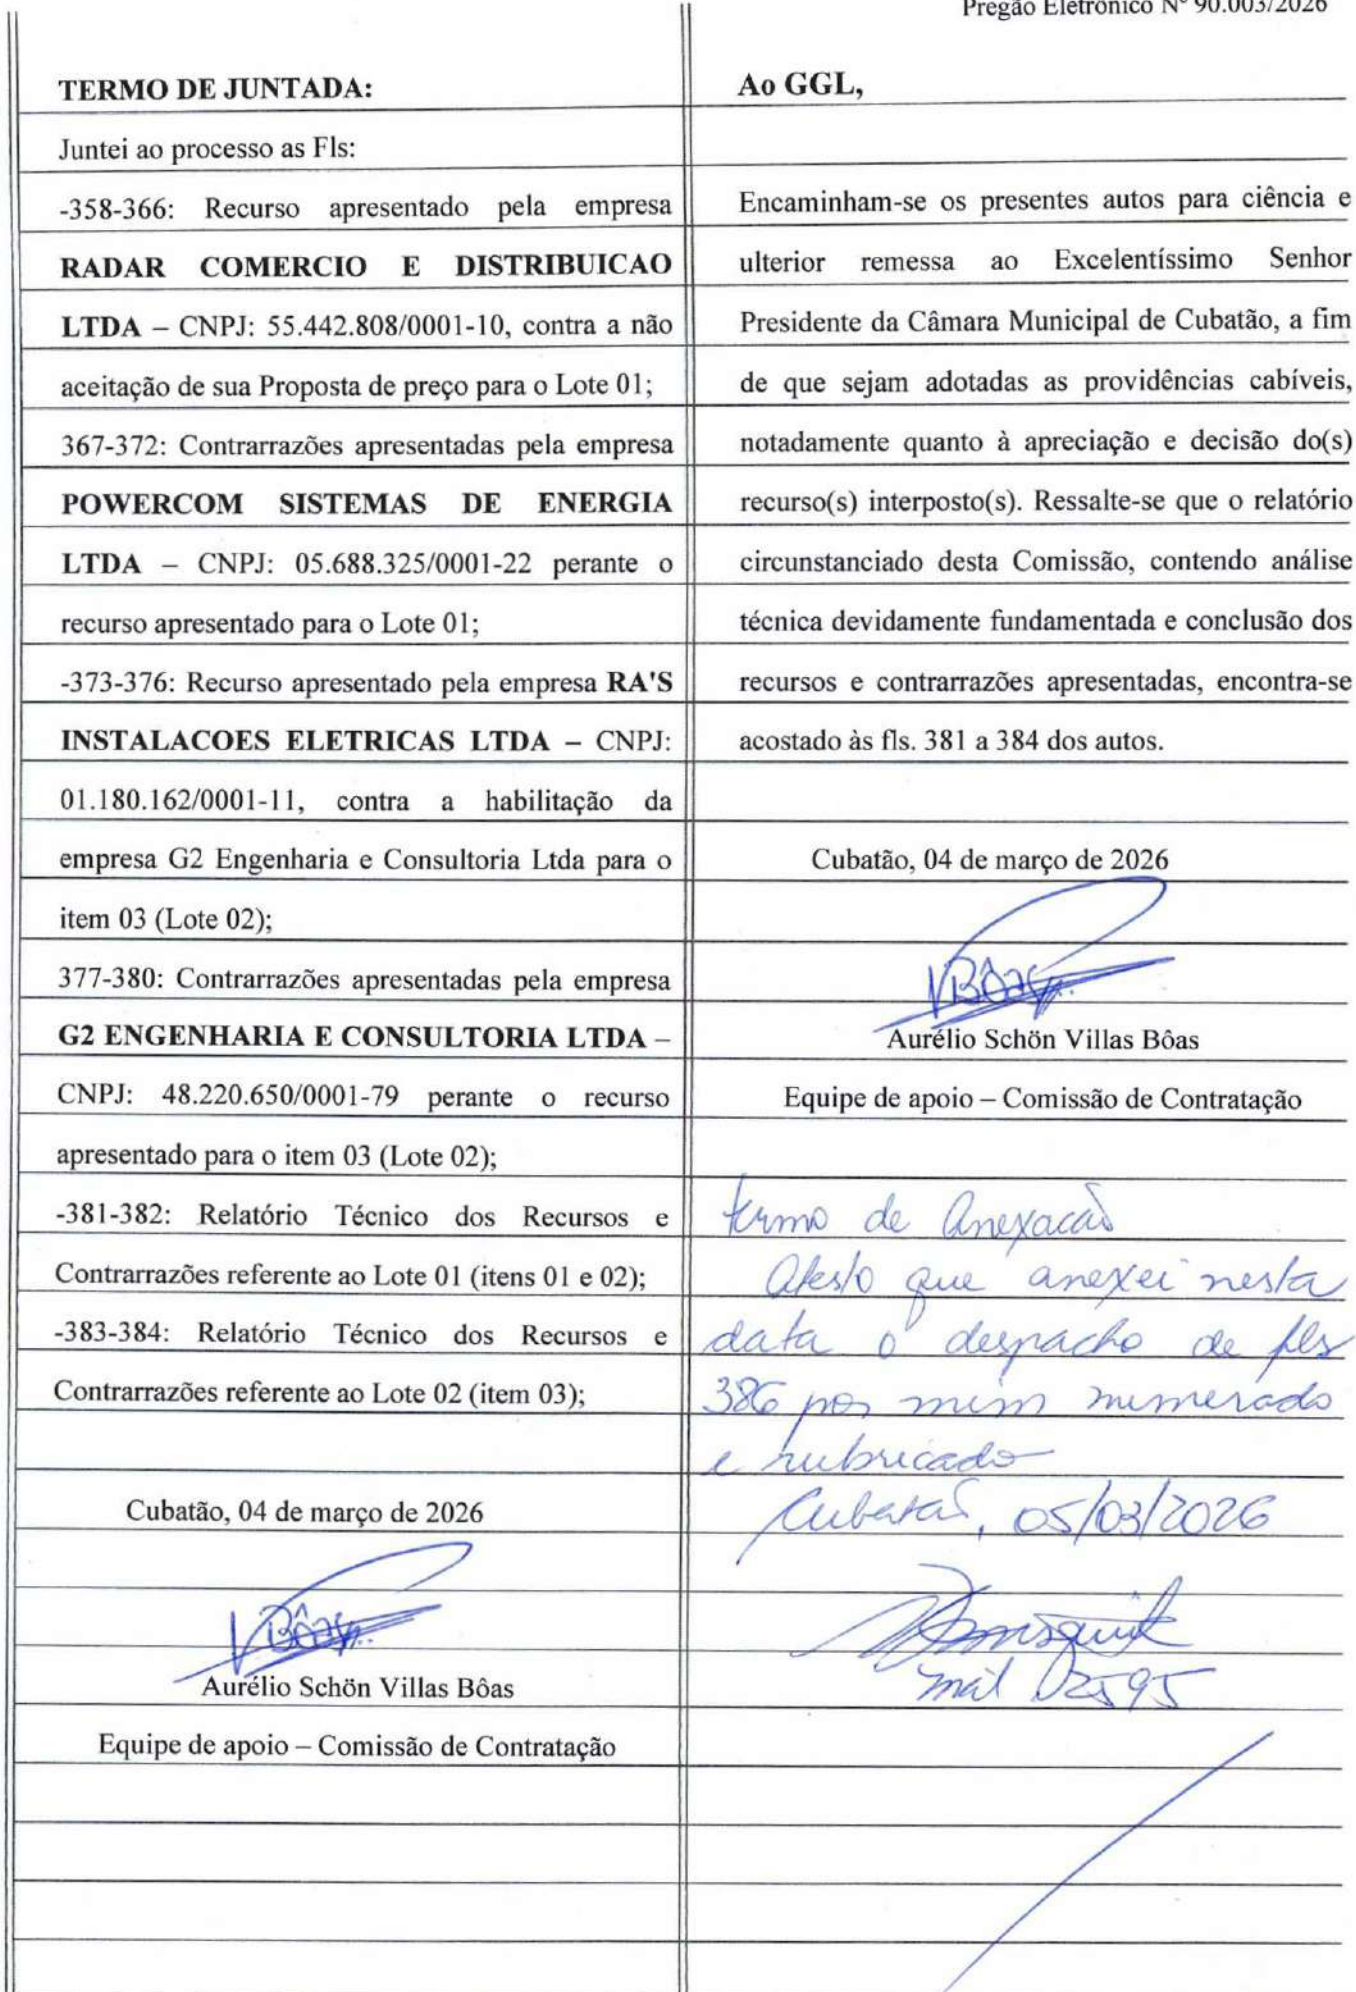 Pregão Eletrônico Nº 90.003/2026
TERMO DE JUNTADA:
Juntei ao processo as Fls:
-358-366: Recurso apresentado pela empresa
RADAR COMERCIO E DISTRIBUICAO
LTDA – CNPJ: 55.442.808/0001-10, contra a não
aceitação de sua Proposta de preço para o Lote 01;
367-372: Contrarrazões apresentadas pela empresa
POWERCOM SISTEMAS DE ENERGIA
LTDA – CNPJ: 05.688.325/0001-22 perante o
recurso apresentado para o Lote 01;
-373-376: Recurso apresentado pela empresa RA'S
INSTALACOES ELETRICAS LTDA – CNPJ:
01.180.162/0001-11, contra a habilitação da
empresa G2 Engenharia e Consultoria Ltda para o
item 03 (Lote 02);
377-380: Contrarrazões apresentadas pela empresa
G2 ENGENHARIA E CONSULTORIA LTDA –
CNPJ: 48.220.650/0001-79 perante o recurso
apresentado para o item 03 (Lote 02);
-381-382: Relatório Técnico dos Recursos e
Contrarrazões referente ao Lote 01 (itens 01 e 02);
-383-384: Relatório Técnico dos Recursos e
Contrarrazões referente ao Lote 02 (item 03);
Cubatão, 04 de março de 2026
VBôas
Aurélio Schön Villas Bôas
Equipe de apoio – Comissão de Contratação
Ao GGL,
Encaminham-se os presentes autos para ciência e
ulterior remessa ao Excelentíssimo Senhor
Presidente da Câmara Municipal de Cubatão, a fim
de que sejam adotadas as providências cabíveis,
notadamente quanto à apreciação e decisão do(s)
recurso(s) interposto(s). Ressalte-se que o relatório
circunstanciado desta Comissão, contendo análise
técnica devidamente fundamentada e conclusão dos
recursos e contrarrazões apresentadas, encontra-se
acostado às fls. 381 a 384 dos autos.
Cubatão, 04 de março de 2026
VBôas
Aurélio Schön Villas Bôas
Equipe de apoio – Comissão de Contratação
termo de Anexacão
Atesto que anexei nesta
data o despacho de fls
386 por mim numerado
e rubricado
Cubatão, 05/03/2026
mat 02595